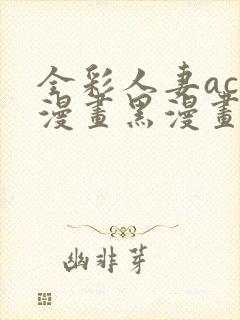 全彩人妻ac
漫畫黑漫畫
幽非芽